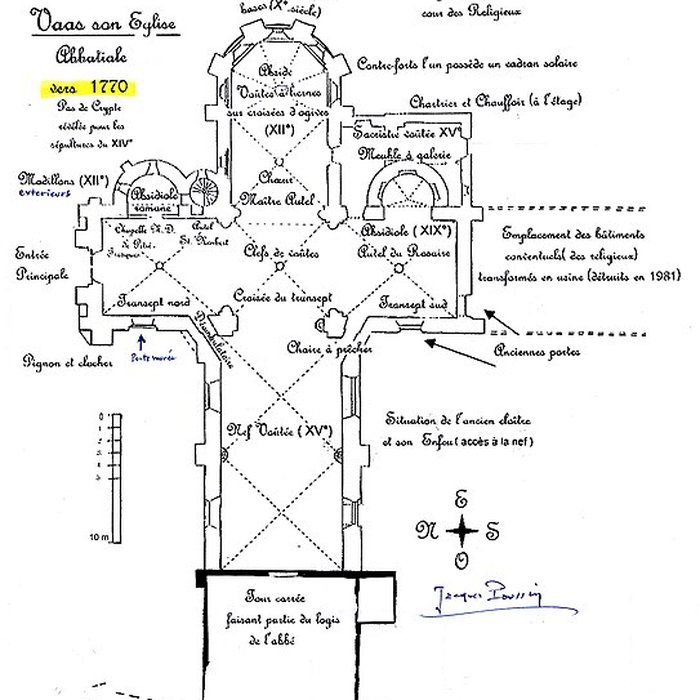 bases (X° siècle)
cour des Religieux
Vaas son Eglise
Abbatiale
vers 1770
Pas de Crypte
révélée pour les
sépultures du XIV°
Abside
Voûtes à liernes
sur croisées d'ogives
(XII°)
Contre-forts l'un possède un cadran solaire
Chartrier et Chauffoir (à l'étage)
Sacristie voûtée XV°
Meuble à galerie
Modillons (XII°)
exterieurs
Absidiole
romane
Chœur
Maître Autel
Chapelle N.D.
de Pitié
Autel
St. Norbert
Clefs de voûtes
Absidiole (XIX°)
Autel du Rosaire
Emplacement des bâtiments
conventuels (des religieux)
transformés en usine (détruits en 1981)
Entrée
Principale
Transept nord
Croisée du transept
Transept sud
Déambulatoire
Chaire à prêcher
Anciennes portes
Pignon et clocher
Porte murée
Nef Voûtée (XV°)
Situation de l'ancien cloître
et son Enfeu (accès à la nef)
0
1
2
3
4
5
10 m
E
N S
O
Jacques Poussin
Tour carrée
faisant partie du logis
de l'abbé